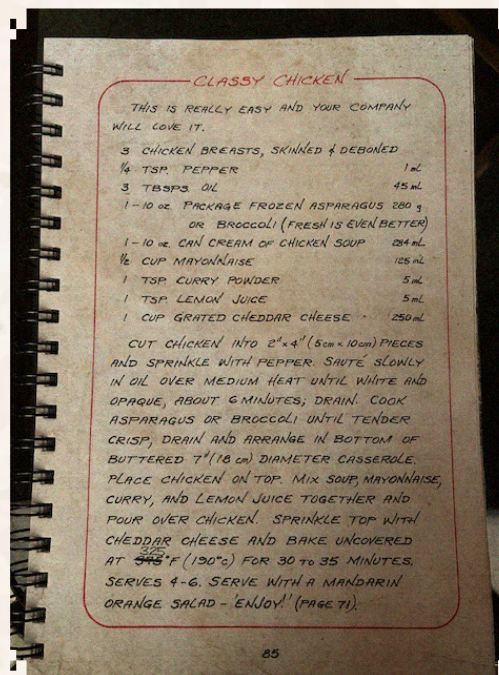 CLASSY CHICKEN
THIS IS REALLY EASY AND YOUR COMPANY
WILL LOVE IT.
3 CHICKEN BREASTS, SKINNED & DEBONED
¼ TSP. PEPPER 1 mL
3 TBSPS. OIL 45 mL
1-10 oz. PACKAGE FROZEN ASPARAGUS 280 g
OR BROCCOLI (FRESH IS EVEN BETTER)
1-10 oz. CAN CREAM OF CHICKEN SOUP 284 mL
½ CUP MAYONNAISE 125 mL
1 TSP. CURRY POWDER 5 mL
1 TSP. LEMON JUICE 5 mL
1 CUP GRATED CHEDDAR CHEESE 250 mL
CUT CHICKEN INTO 2" x 4" (5 cm x 10 cm) PIECES
AND SPRINKLE WITH PEPPER. SAUTÉ SLOWLY
IN OIL OVER MEDIUM HEAT UNTIL WHITE AND
OPAQUE, ABOUT 6 MINUTES; DRAIN. COOK
ASPARAGUS OR BROCCOLI UNTIL TENDER
CRISP, DRAIN AND ARRANGE IN BOTTOM OF
BUTTERED 7" (18 cm) DIAMETER CASSEROLE.
PLACE CHICKEN ON TOP. MIX SOUP, MAYONNAISE,
CURRY, AND LEMON JUICE TOGETHER AND
POUR OVER CHICKEN. SPRINKLE TOP WITH
CHEDDAR CHEESE AND BAKE UNCOVERED
325
AT 375°F (190°C) FOR 30 TO 35 MINUTES.
SERVES 4-6. SERVE WITH A MANDARIN
ORANGE SALAD - 'ENJOY!' (PAGE 71).
85